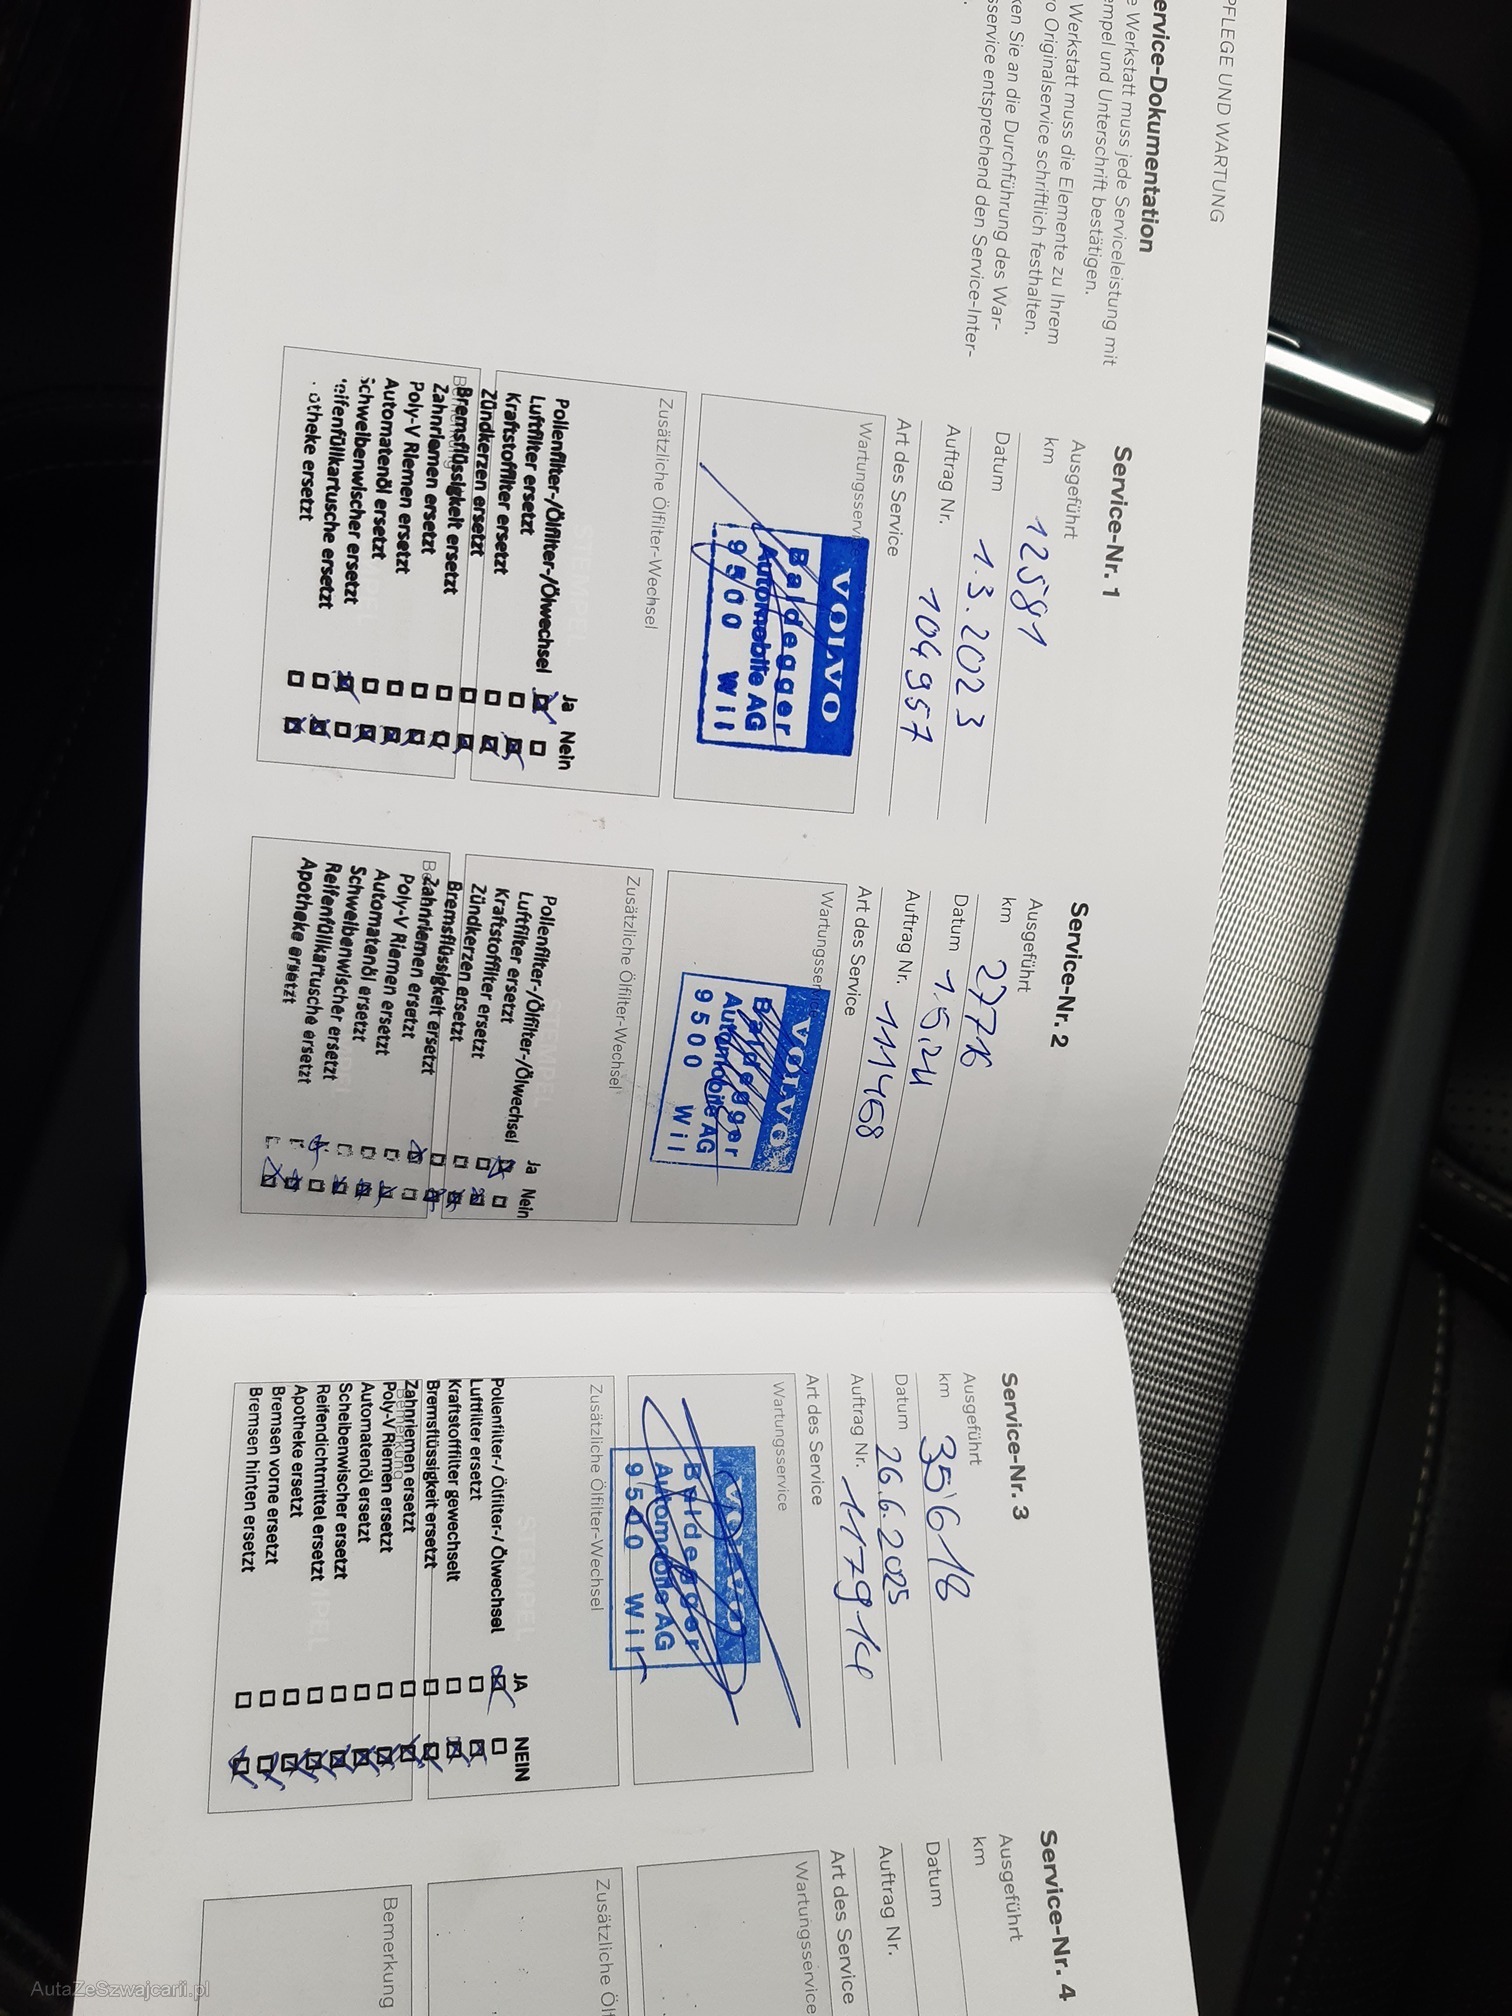 PFLEGE UND WARTUNG
ervice-Dokumentation
e Werkstatt muss jede Serviceleistung mit
empel und Unterschrift bestätigen.
Werkstatt muss die Elemente zu Ihrem
o Originalservice schriftlich festhalten.
ken Sie an die Durchführung des War-
sservice entsprechend den Service-Inter-
Service-Nr. 1
Ausgeführt
km 12581
Datum 1.3.2023
Auftrag Nr. 104957
Art des Service
Wartungsserv
VOLVO
Baldegger
Automobile AG
9500 Wil
Zusätzliche Ölfilter-Wechsel
STEMPEL
Ja Nein
Pollenfilter-/Ölfilter-/Ölwechsel
Luftfilter ersetzt
Kraftstoffilter ersetzt
Zündkerzen ersetzt
Bremsflüssigkeit ersetzt
Zahnriemen ersetzt
Poly-V Riemen ersetzt
Automatenöl ersetzt
chweibenwischer ersetzt
eifenfüllkartusche ersetzt
otheke ersetzt
Service-Nr. 2
Ausgeführt
km
Datum 1.5.24
Auftrag Nr. 111468
Art des Service
Wartungsservice
VOLVO
Baldegger
Automobile AG
9500 Wil
Zusätzliche Ölfilter-Wechsel
STEMPEL
Ja Nein
Pollenfilter-/Ölfilter-/Ölwechsel
Luftfilter ersetzt
Kraftstoffilter ersetzt
Zündkerzen ersetzt
Bremsflüssigkeit ersetzt
Zahnriemen ersetzt
Poly-V Riemen ersetzt
Automatenöl ersetzt
Schweibenwischer ersetzt
Reifenfüllkartusche ersetzt
Apotheke ersetzt
Service-Nr. 3
Ausgeführt
km 35'618
Datum 26.6.2025
Auftrag Nr. 117914
Art des Service
Wartungsservice
VOLVO
Baldegger
Automobile AG
9500 Wil
Zusätzliche Ölfilter-Wechsel
STEMPEL
JA NEIN
Pollenfilter-/ Ölfilter-/ Ölwechsel
Luftfilter ersetzt
Kraftstofffilter gewechselt
Bremsflüssigkeit ersetzt
Zahnriemen ersetzt
Bemerkung
Poly-V Riemen ersetzt
Automatenöl ersetzt
Scheibenwischer ersetzt
Reifendichtmittel ersetzt
Apotheke ersetzt
Bremsen vorne ersetzt
Bremsen hinten ersetzt
Service-Nr. 4
Ausgeführt
km
Datum
Auftrag Nr.
Art des Service
Wartungsservice
Zusätzliche Ölf
Bemerkung
AutaZeSzwajcarii.pl